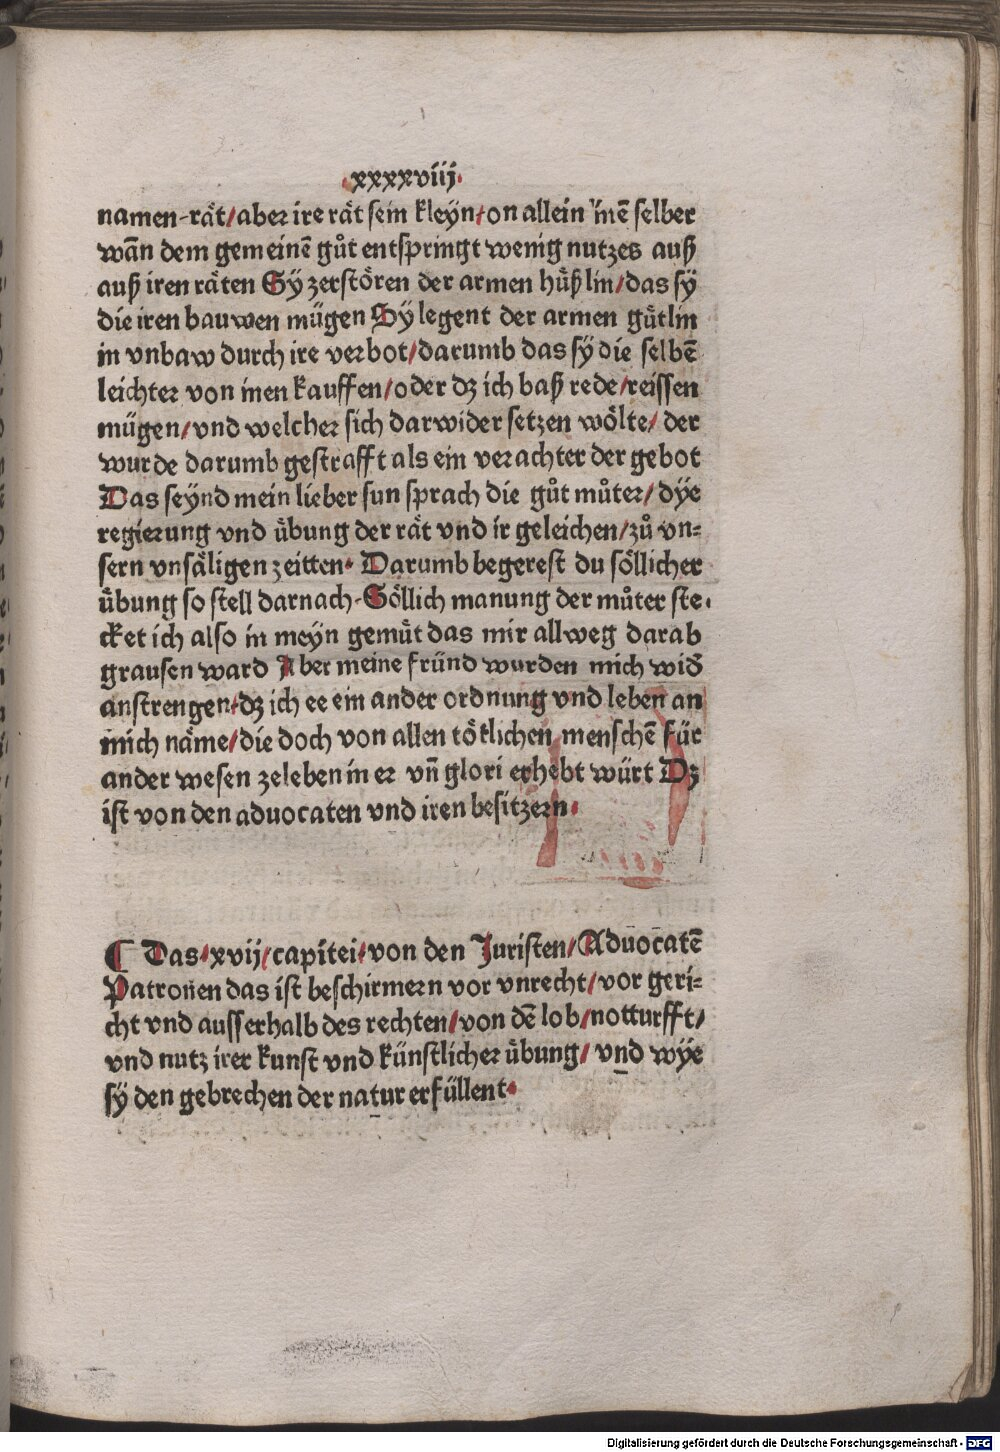 ·xxxxviij·
namen-rät/aber ire rät sein kleyn/on allein inē selber
wān dem gemeinē gůt entspringt wenig nutzes auß
auß iren räten Sy zerstören der armen hüßlin/das sÿ
die iren bauwen mügen Sÿ legent der armen gütlin
in vnbaw durch ire verbot/darumb das sÿ die selbē
leichter von inen kauffen/oder dz ich baß rede/reissen
mügen/vnd welcher sich darwider setzen wölte/ der
wurde darumb gestrafft als ein verachter der gebot
Das seÿnd mein lieber sun sprach die gůt můter/ dÿe
regierung vnd übung der rät vnd ir geleichen/zů vn=
sern vnsäligen zeitten· Darumb begerest du söllicher
übung so stell darnach-Söllich manung der můter ste·
cket ich also in meyn gemüt das mir allweg darab
grausen ward Aber meine fründ wurden mich wid̄
anstrengen/dz ich ee ein ander ordnung vnd leben an
mich näme/die doch von allen tötlichen menschē für
ander wesen zeleben in er vn̄ glori erhebt würt Dz
ist von den aduocaten vnd iren besitzern·
¶ Das·xvij/capitel/von den Juristen/Aduocatē
Patronen das ist beschirmern vor vnrecht/vor geri=
cht vnd ausserhalb des rechten/von dē lob/notturfft/
vnd nutz irer kunst vnd künstlicher übung/ vnd wÿe
sÿ den gebrechen der natur erfüllent·
Digitalisierung gefördert durch die Deutsche Forschungsgemeinschaft - DFG